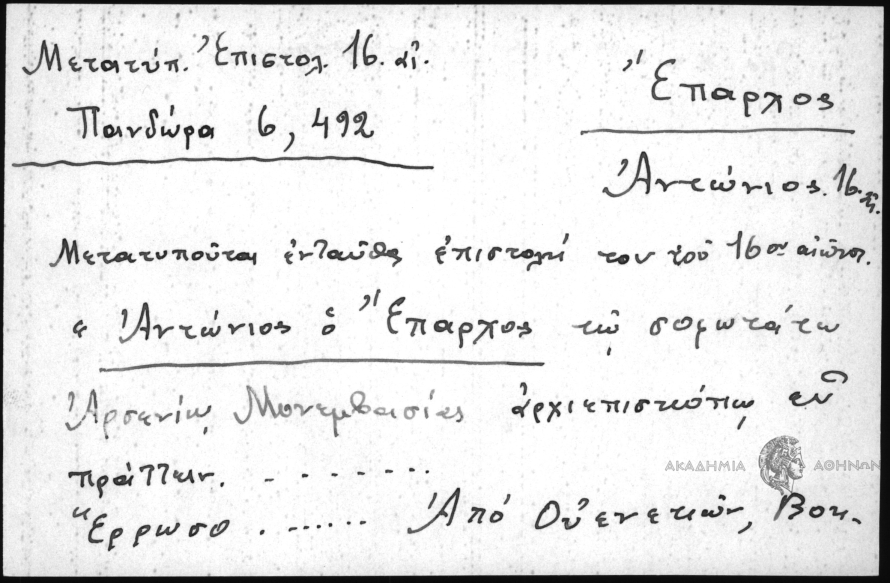 Μετατύπ. Ἐπιστολ. 16. αἰ.
Πανδώρα 6, 492
Ἔπαρχος
Ἀντώνιος. 16. αἰ.
Μετατυποῦται ἐνταῦθα ἐπιστολή του τοῦ 16ου αἰῶνος.
« Ἀντώνιος ὁ Ἔπαρχος τῷ σοφωτάτῳ
Ἀρσενίῳ Μονεμβασίας ἀρχιεπισκόπῳ εὖ
πράττειν. - - - - - - -
Ἔρρωσο . ...... Ἀπό Οὐενετιῶν, Βοη.
ΑΚΑΔΗΜΙΑ ΑΘΗΝΩΝ